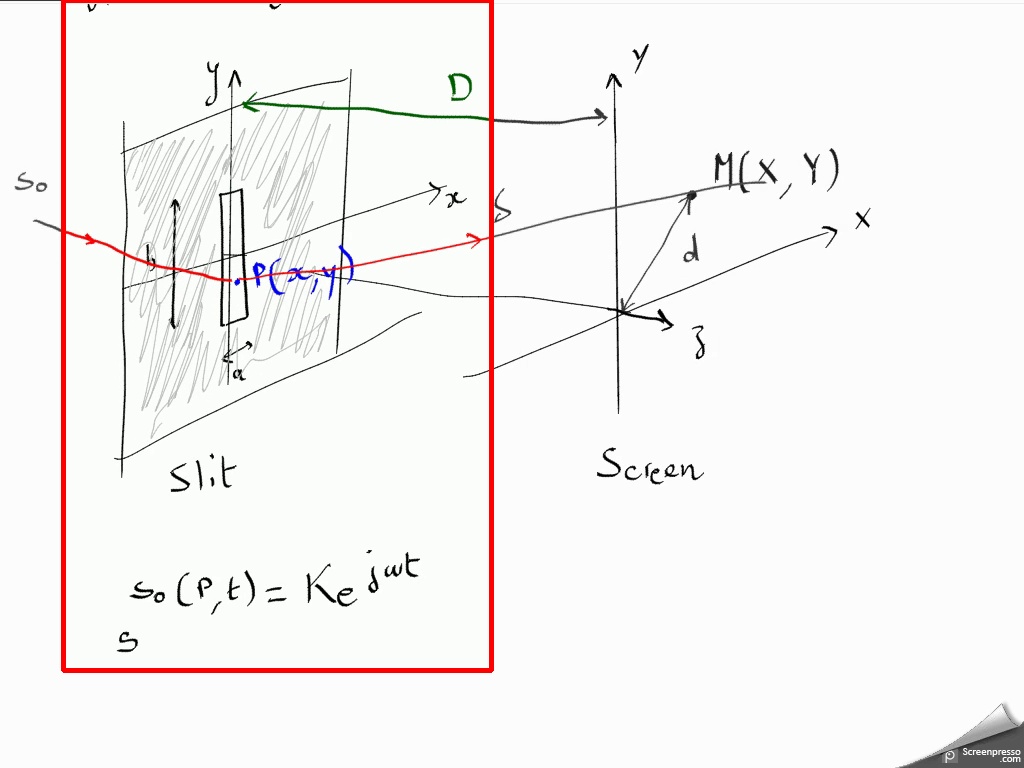 y
D
Y
M(X, Y)
s₀
x
S
X
b
P(x,y)
d
a
z
Slit
Screen
s₀(P,t) = K e^{jωt}
s
Screenpresso
.com